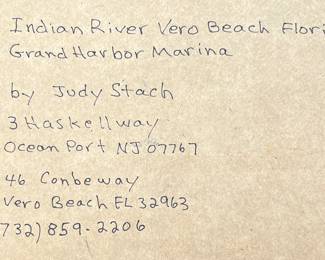 Indian River Vero Beach Flori
Grand Harbor Marina
by Judy Stach
3 Haskellway
Ocean Port NJ 07767
46 Conbeway
Vero Beach FL 32963
732) 859-2206